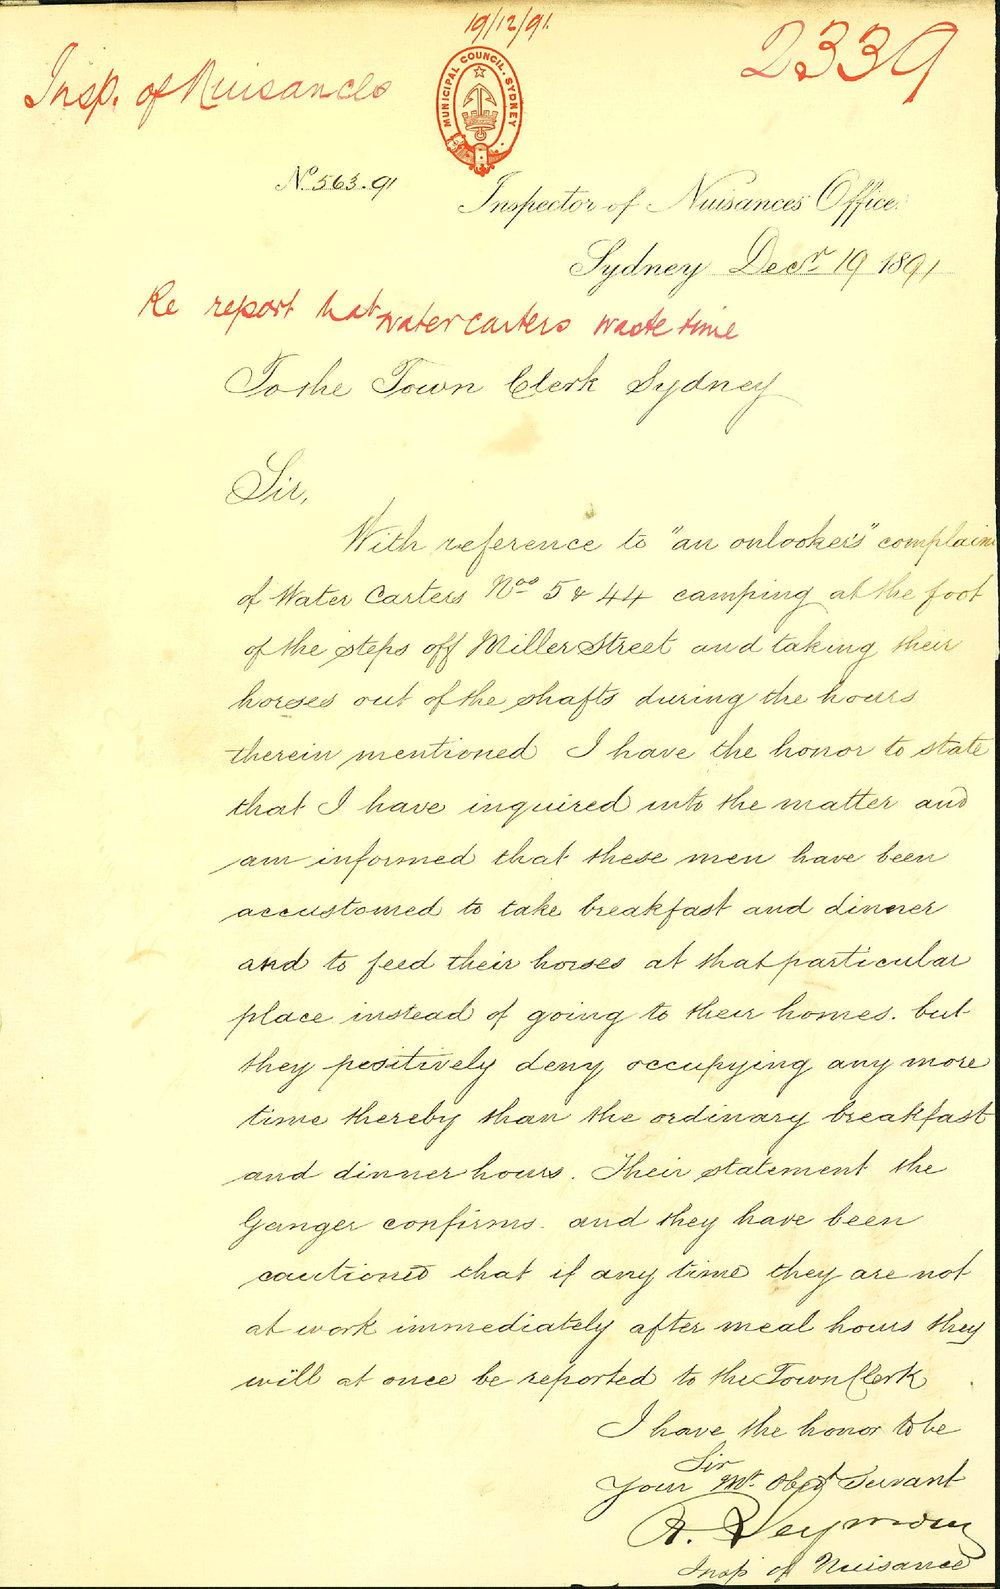 19/12/91.
2339
Insp. of Nuisances
MUNICIPAL COUNCIL. SYDNEY
No. 563.91
Inspector of Nuisances Office.
Sydney Decr. 19 1891
Re report that water carters waste time
To the Town Clerk Sydney
Sir,
With reference to "an onlooker's" complaint
of Water Carters Nos 5 & 44 camping at the foot
of the steps off Miller Street and taking their
horses out of the shafts during the hours
therein mentioned I have the honor to state
that I have inquired into the matter and
am informed that these men have been
accustomed to take breakfast and dinner
and to feed their horses at that particular
place instead of going to their homes. but
they positively deny occupying any more
time thereby than the ordinary breakfast
and dinner hours. Their statement the
Ganger confirms. and they have been
cautioned that if any time they are not
at work immediately after meal hours they
will at once be reported to the Town Clerk
I have the honor to be
Sir
Your Mt. Obedt Servant
R. Seymour
Insp of Nuisance